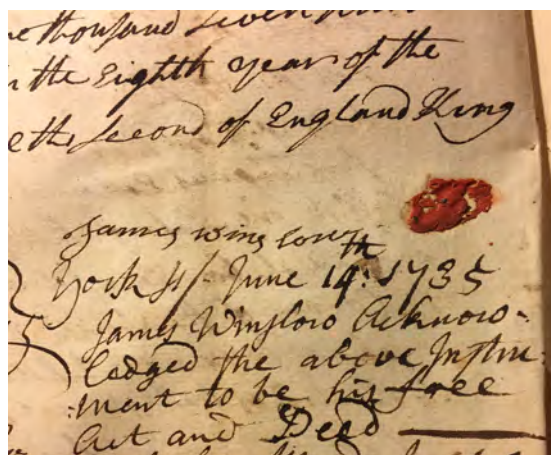 thousand Seven
in the Eighth year of the
the Second of England King
James winslow
York ss/ June 14th: 1735
James Winslow Acknow-
ledged the above Instru-
:ment to be his free
Act and Deed